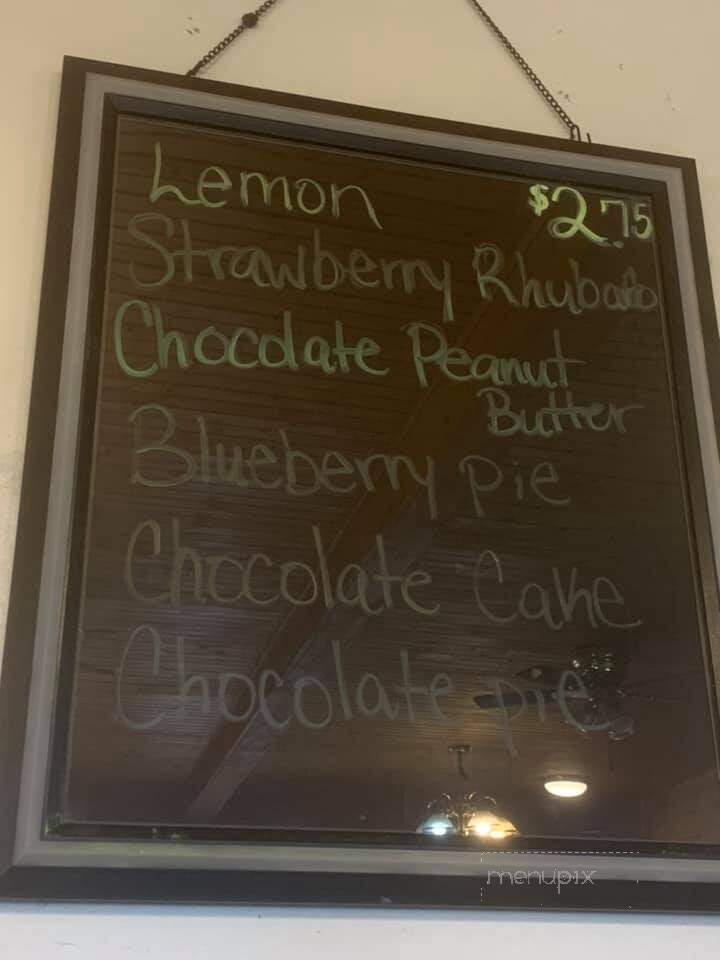 Lemon $2.75
Strawberry Rhubarb
Chocolate Peanut
Butter
Blueberry pie
Chocolate Cake
Chocolate pie
menupix